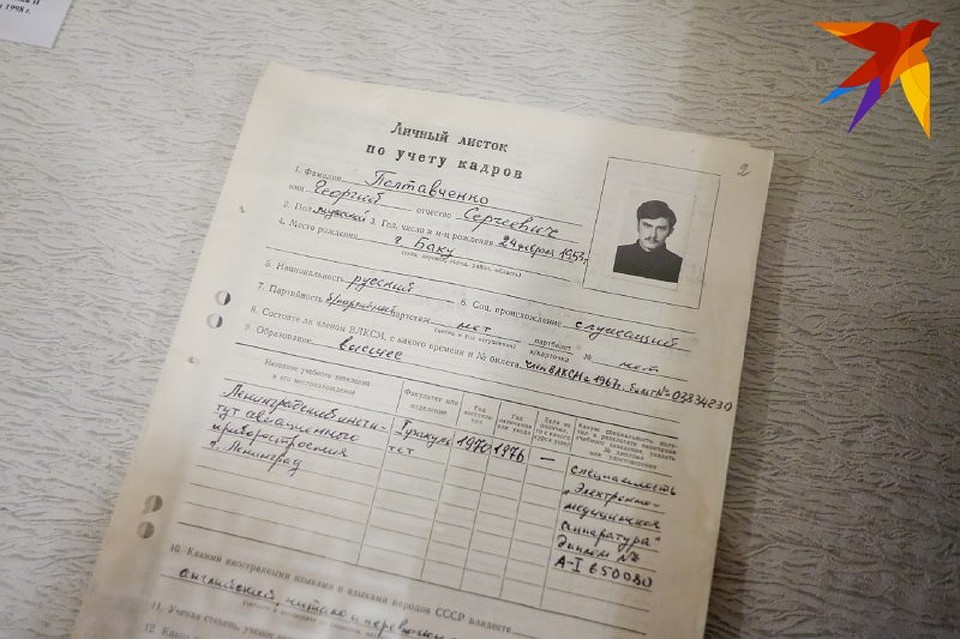 1998 г.
2
Личный листок
по учету кадров
1. Фамилия Полтавченко
имя Георгий отчество Сергеевич
2. Пол мужской 3. Год, число и м-ц рождения 24 февраля 1953 г.
4. Место рождения г. Баку
(село, деревня, город, район, область)
5. Национальность русский 6. Соц. происхождение служащий
7. Партийность беспартийный партстаж нет партбилет к/карточка № нет
8. Состоите ли членом ВЛКСМ, с какого времени и № билета член ВЛКСМ с 1967г. билет № 03834230
9. Образование высшее
Название учебного заведения и его местонахождение
Факультет или отделение
Год поступления
Год окончания или ухода
Если не окончил, то с какого курса ушел
Какую специальность получил в результате окончания учебного заведения, указать № диплома или удостоверения
Ленинградский инсти-
тут авиационного
приборостроения
г. Ленинград
I факуль
тет
1970
1976
—
специальность
"Электронно-
медицинская
аппаратура"
Диплом №
А-I 650080
10. Какими иностранными языками и языками народов СССР владеете
английский, читаю и
11. Ученая степень, ученое
12.